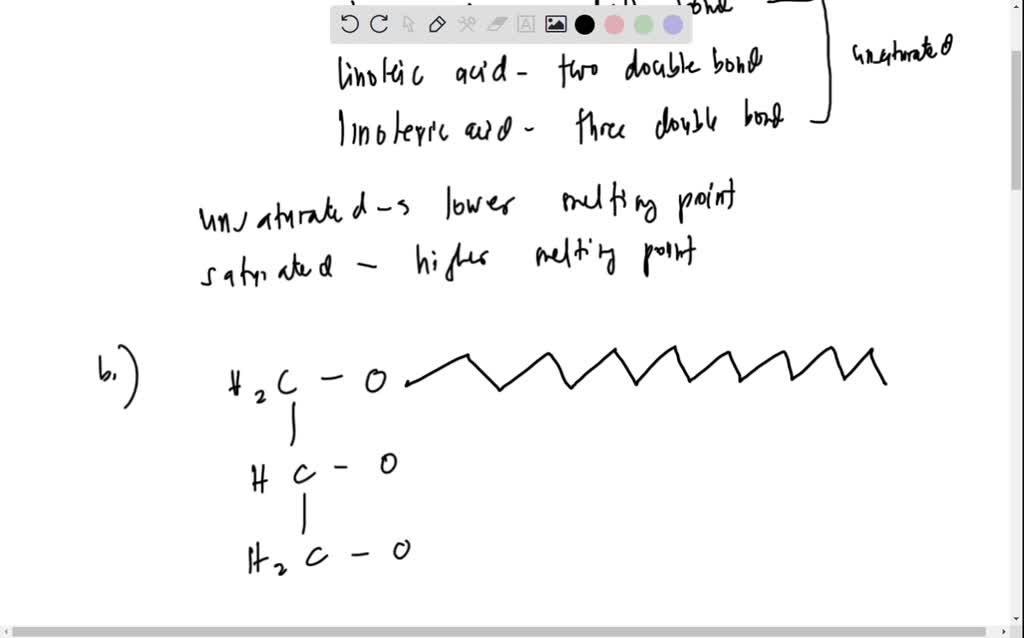 bond
linoleic acid - two double bond
linolenic acid - three double bond
unsaturated
unsaturated -s lower melting point
saturated - higher melting point
b.)
H2C - O
HC - O
H2C - O